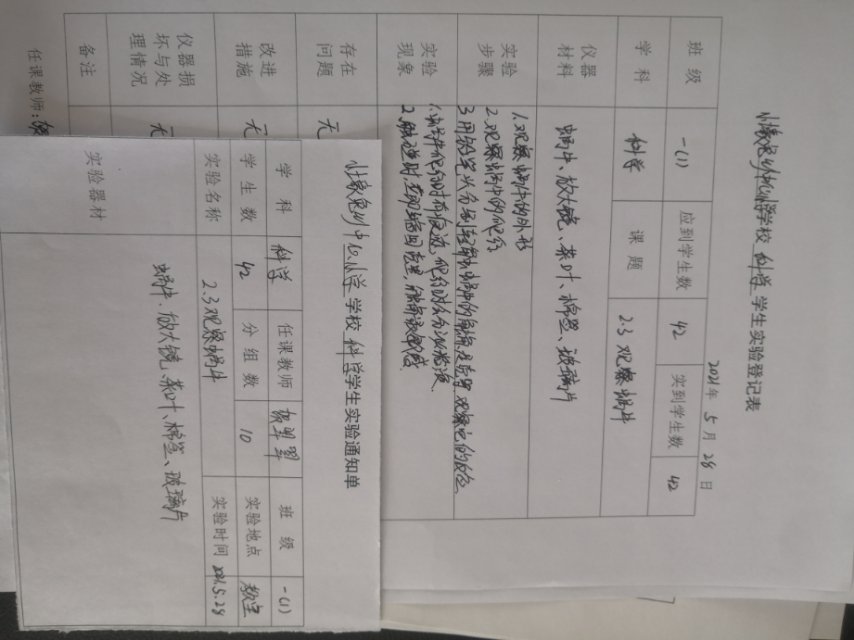 学校 科学 学生实验登记表
2021年 5月 28日
班级 一(1) 应到学生数 42 实到学生数 42
学科 科学 课题 2.3 观察蜗牛
仪器材料 蜗牛、放大镜、菜叶、棉签、玻璃片
实验步骤 1.观察蜗牛的外形
2.观察蜗牛的爬行
3.用铅笔头分别轻触蜗牛的 观察它的反应
实验现象 1.蜗牛爬行时
2.触碰时
存在问题 无
改进措施 无
仪器损坏与处理情况 无
备注
任课教师:
中心小学 学校 科学 学生实验通知单
学科 科学 任课教师 班级 一(1)
学生数 42 分组数 10 实验地点 教室
实验名称 2.3观察蜗牛 实验时间 2021.5.28
实验器材 蜗牛、放大镜、菜叶、棉签、玻璃片